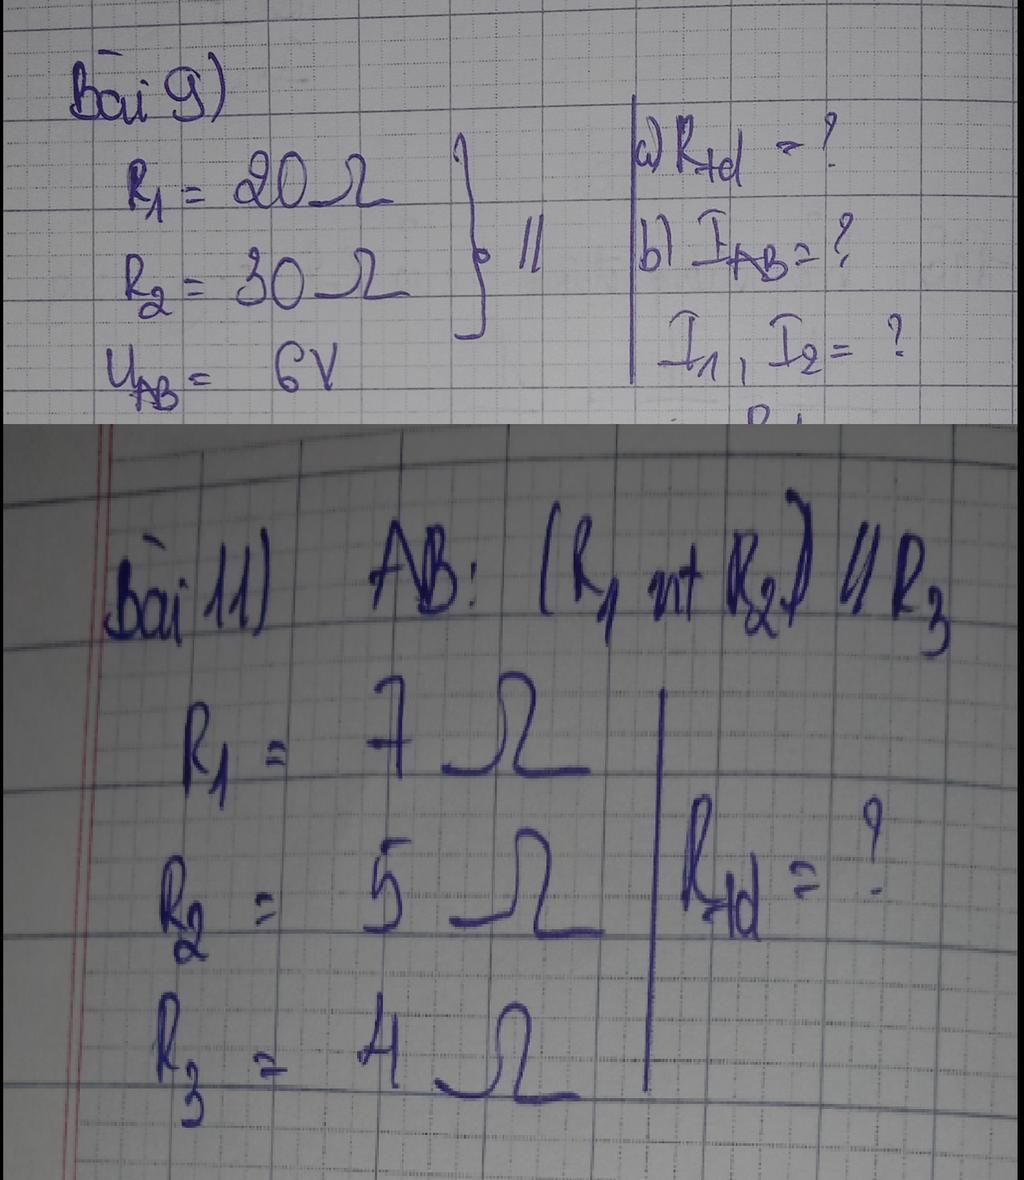 Bài 9)
R1 = 20Ω
R2 = 30Ω
UAB = 6V
} //
a) Rtđ = ?
b) IAB = ?
I1, I2 = ?
Bài 11) AB: (R1 nt R2) // R3
R1 = 7 Ω
R2 = 5 Ω
R3 = 4 Ω
Rtđ = ?